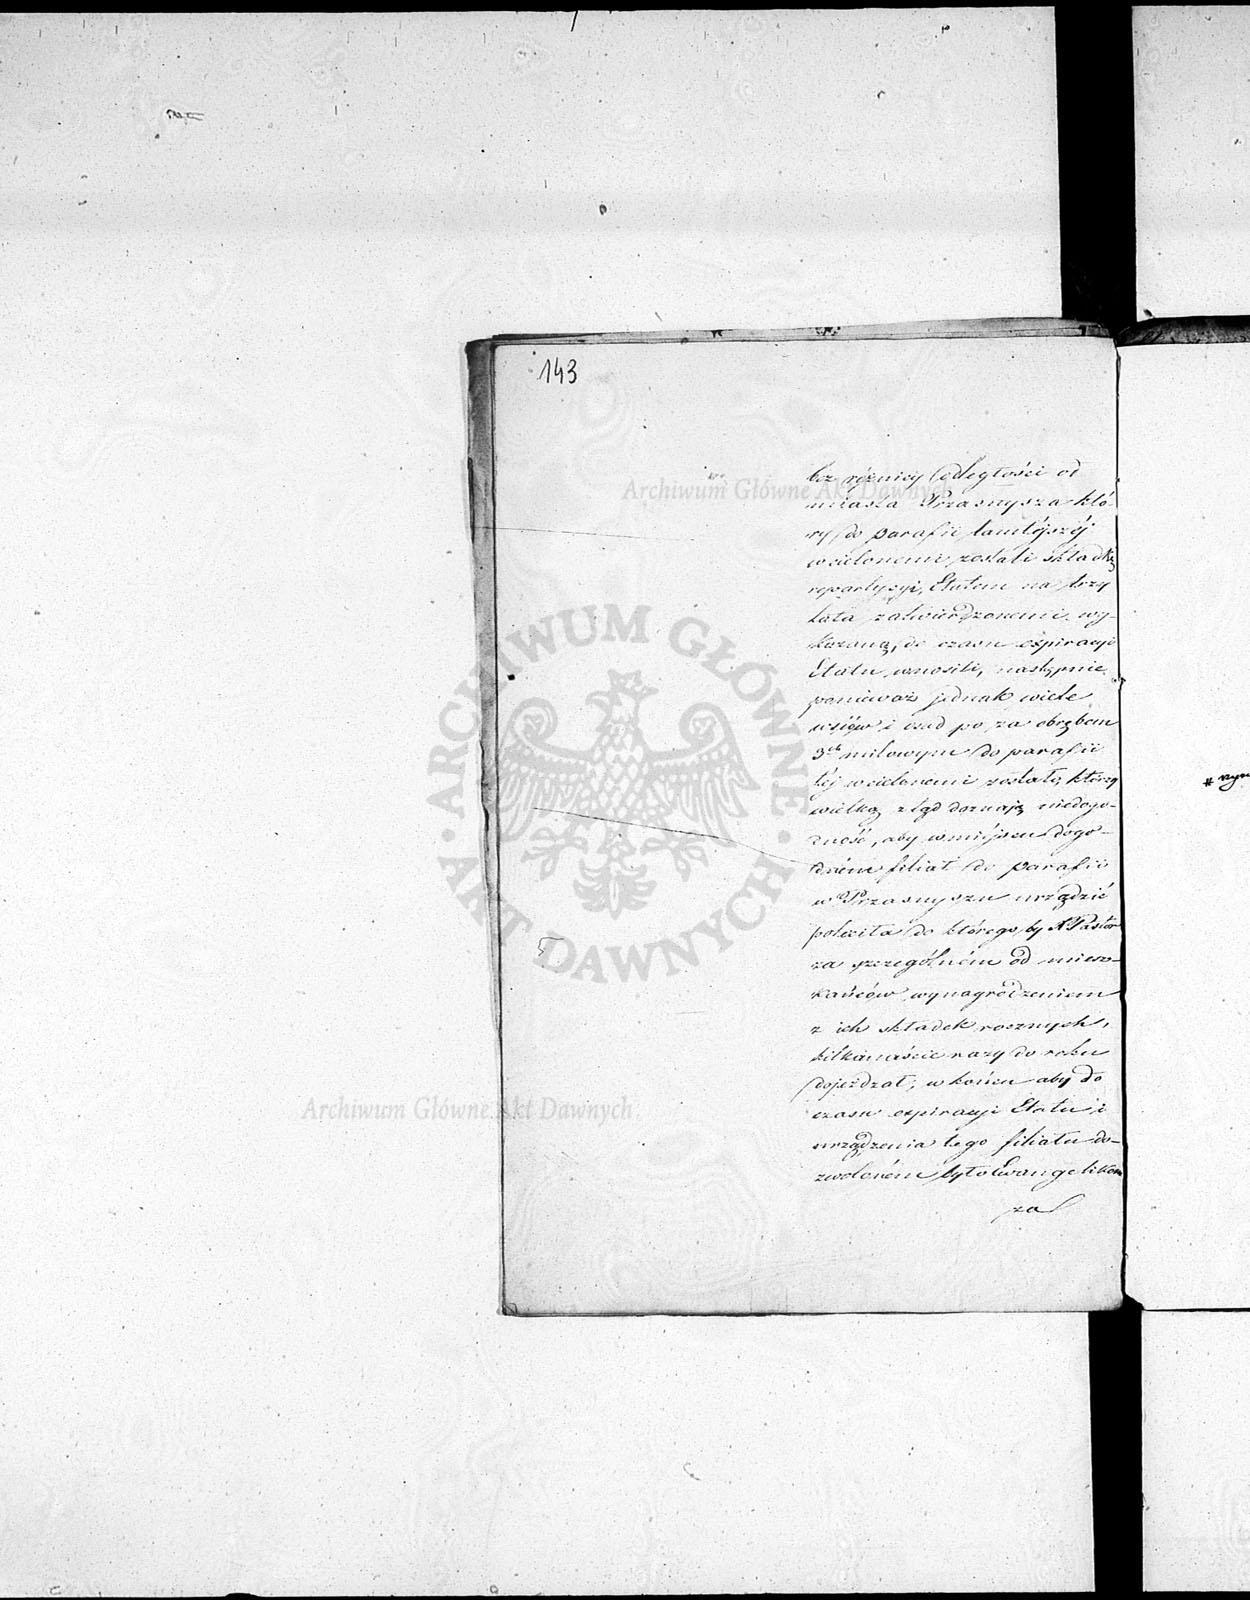 143
bez różnicy odległości od
miasta Przasnysza któ-
rzy do parafii tamtéjszéj
wcielonemi zostali składkę
repartycyi, Etatem na trzy
lata zatwierdzonemi wy-
kazaną, do czasu expiracyi
Etatu wnosili, następnie
ponieważ jednak wiele
wsiów i osad po za obrębem
3ch milowym do parafii
téj wcielonemi zostało, którzy
wielką ztąd doznają niedogo-
dność, aby w miéjscu dogo-
dném filiał do parafii
w Przasnyszu urządzić
poleciła do którego by X Pastor
za szczególném od miesz-
kańców wynagrodzeniem
z ich składek rocznych,
kilkanaście razy do roku
dojeżdzał; w końcu aby do
czasu expiracyi Etatu i
urządzenia tego filiału do-
zwoloném było Ewangelikom
za
Archiwum Główne Akt Dawnych
ARCHIWUM GŁÓWNE AKT DAWNYCH
Archiwum Główne Akt Dawnych